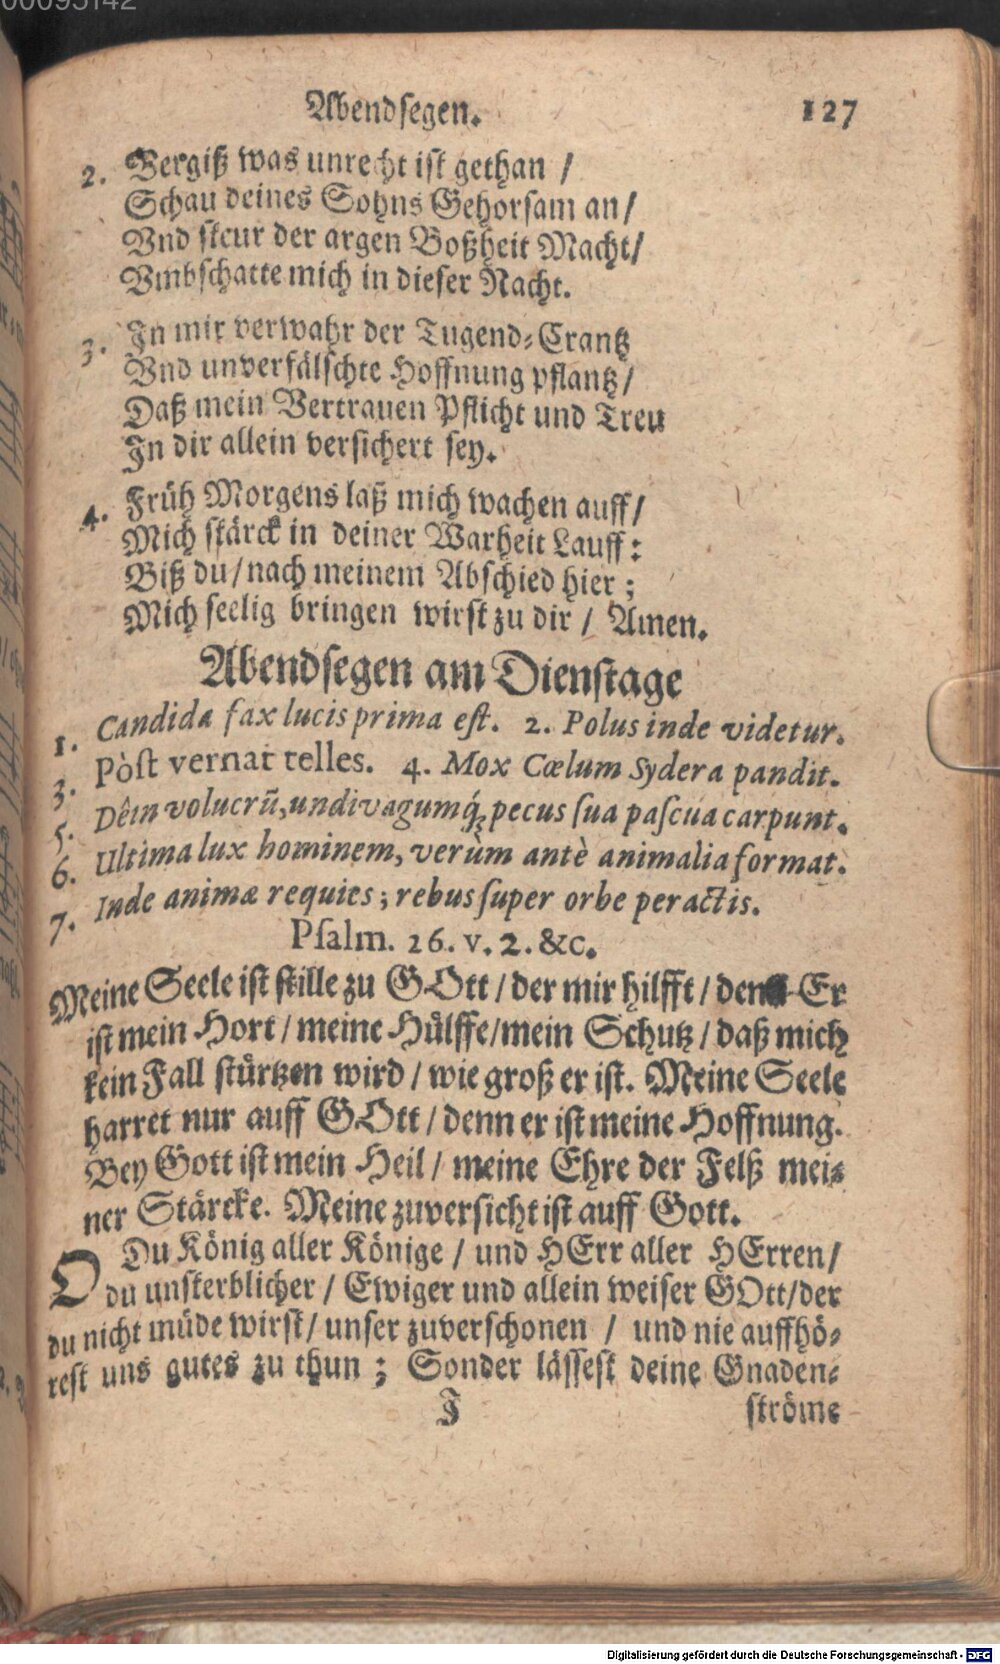 00095142
Abendsegen. 127
2. Vergiß was unrecht ist gethan /
Schau deines Sohns Gehorsam an /
Vnd steur der argen Boßheit Macht /
Vmbschatte mich in dieser Nacht.
3. In mir verwahr der Tugend-Crantz
Vnd unverfälschte Hoffnung pflantz /
Daß mein Vertrauen Pflicht und Treu
In dir allein versichert sey.
4. Früh Morgens laß mich wachen auff /
Mich stärck in deiner Warheit Lauff:
Biß du / nach meinem Abschied hier;
Mich seelig bringen wirst zu dir / Amen.
Abendsegen am Dienstage
1. Candida fax lucis prima est. 2. Polus inde videtur.
3. Pòst vernat telles. 4. Mox Cœlum Sydera pandit.
5. Dêin volucrũ, undivagumq́; pecus sua pascua carpunt.
6. Ultima lux hominem, verùm antè animalia format.
7. Inde animæ requies; rebus super orbe peractis.
Psalm. 26. v. 2. &c.
Meine Seele ist stille zu GOtt / der mir hilfft / denn Er
ist mein Hort / meine Hülffe / mein Schutz / daß mich
kein Fall stürtzen wird / wie groß er ist. Meine Seele
harret nur auff GOtt / denn er ist meine Hoffnung.
Bey Gott ist mein Heil / meine Ehre der Felß mei-
ner Stärcke. Meine zuversicht ist auff Gott.
O Du König aller Könige / und HErr aller HErren /
du unsterblicher / Ewiger und allein weiser GOtt / der
du nicht müde wirst / unser zuverschonen / und nie auffhö-
rest uns gutes zu thun; Sonder lässest deine Gnaden-
I ströme
Digitalisierung gefördert durch die Deutsche Forschungsgemeinschaft - DFG